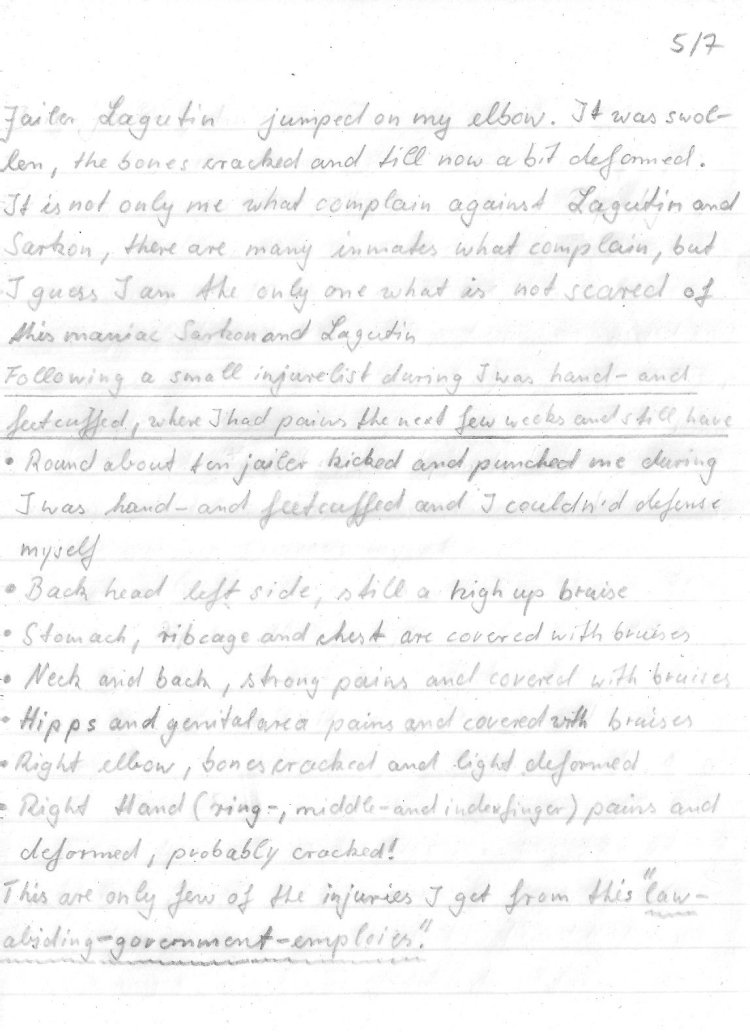 5/7
Jailer Lagutin jumped on my elbow. It was swol-
len, the bones cracked and till now a bit deformed.
It is not only me what complain against Lagutin and
Sarkon, there are many inmates what complain, but
I guess I am the only one what is not scared of
this maniac Sarkon and Lagutin
Following a small injurelist during I was hand- and
feetcuffed, where I had pains the next few weeks and still have
• Round about ten jailer kicked and punched me during
I was hand- and feetcuffed and I couldn'd defense
myself
• Back head left side, still a high up bruise
• Stomach, ribcage and chest are covered with bruises
• Neck and back, strong pains and covered with bruises
• Hipps and genitalarea pains and covered with bruises
• Right elbow, bones cracked and light deformed
• Right Hand (ring-, middle- and indexfinger) pains and
deformed, probably cracked!
This are only few of the injuries I get from this "law-
abiding-government-emploies".